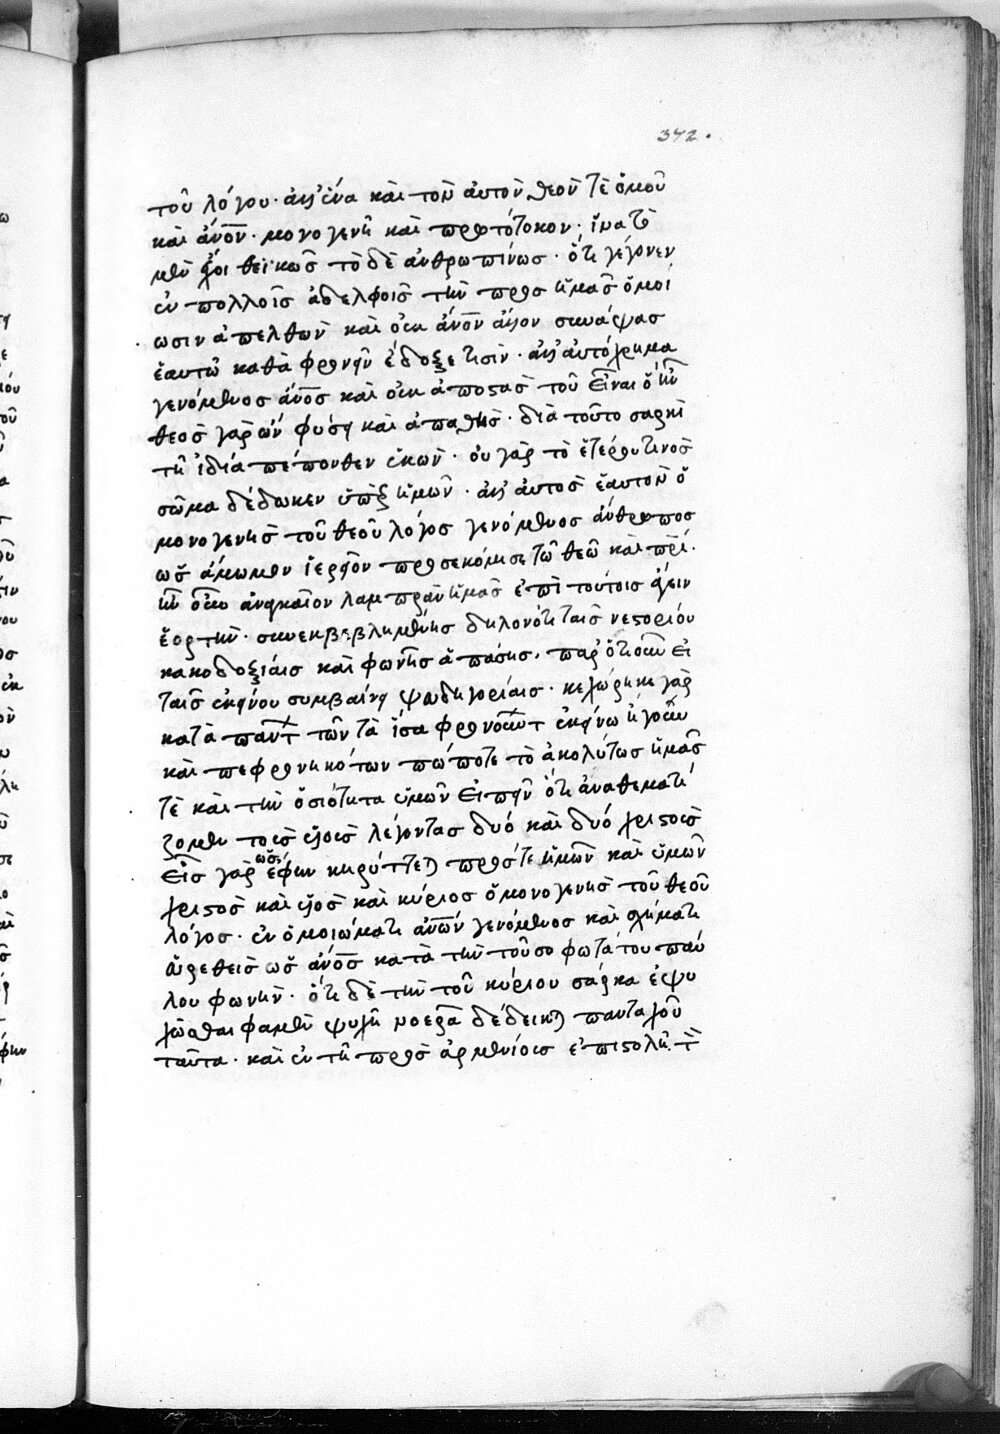 342.
τοῦ λόγου· ἀλλ' ἕνα καὶ τὸν αὐτὸν θεόν τε ὁμοῦ
καὶ ἄνον· μονογενῆ καὶ πρωτότοκον· ἵνα τὸ
μὲν ἔχοι θεϊκῶς τὸ δὲ ἀνθρωπίνως· ὅτι γέγονεν
ἐν πολλοῖς ἀδελφοῖς τὴν πρὸς ἡμᾶς ὁμοί
ωσιν ἀπελθὼν καὶ οὐκ ἄνον ἄλλον συνάψας
ἑαυτῷ καθὰ φρονεῖν ἔδοξέ τισιν· ἀλλ' αὐτόχρημα
γενόμενος ἄνος καὶ οὐκ ἀποστὰς τοῦ εἶναι ὃ ἦν
θεὸς γὰρ ὢν φύσει καὶ ἀπαθὴς· διὰ τοῦτο σαρκὶ
τῇ ἰδίᾳ πέπονθεν ἑκών· οὐ γὰρ τὸ ἑτέρου τινὸς
σῶμα δέδωκεν ὑπὲρ ἡμῶν· ἀλλ' αὐτὸς ἑαυτὸν ὁ
μονογενὴς τοῦ θεοῦ λόγος γενόμενος ἄνθρωπος
ὡς ἄμωμον ἱερεῖον προσεκόμισε τῷ θεῷ καὶ πρί·
ἦν οὖν ἀναγκαῖον λαμπρὰν ἡμᾶς ἐπὶ τούτοις ἄγειν
ἑορτὴν· συνεκβεβλημένης δηλονότι ταῖς νεστορίου
κακοδοξίαις καὶ φωνῆς ἁπάσης, παρ' ὁτιοῦν εἰ
ταῖς ἐκείνου συμβαίνει ψυδηγορίαις· κεχώρηκε γὰρ
κατὰ παντ τῶν τὰ ἴσα φρονούντ ἐκείνῳ ἤγουν
καὶ πεφρονηκότων πώποτε τὸ ἀκολύτως ἡμᾶς
τὲ καὶ τὴν ὁσιότητα ὑμῶν εἰπεῖν ὅτι ἀναθεματί
ζομεν τοὺς υἱοὺς λέγοντας δύο καὶ δύο χριστοὺς
εἷς γὰρ ὡς ἔφην κηρύττεται πρός τε ἡμῶν καὶ ὑμῶν
χριστὸς καὶ υἱὸς καὶ κύριος ὁ μονογενὴς τοῦ θεοῦ
λόγος· ἐν ὁμοιώματι ἀνων γενόμενος καὶ σχήματι
εὑρεθεὶς ὡς ἄνος κατὰ τὴν τοῦ σοφωτάτου παύ
λου φωνὴν· ὅτι δὲ τὴν τοῦ κυρίου σάρκα ἐψυ
χῶσθαι φαμὲν ψυχῇ νοερᾷ δέδεικται πανταχοῦ
ταῦτα· καὶ ἐν τῇ πρὸς ἀρμενίοις ἐπιστολῇ· τ